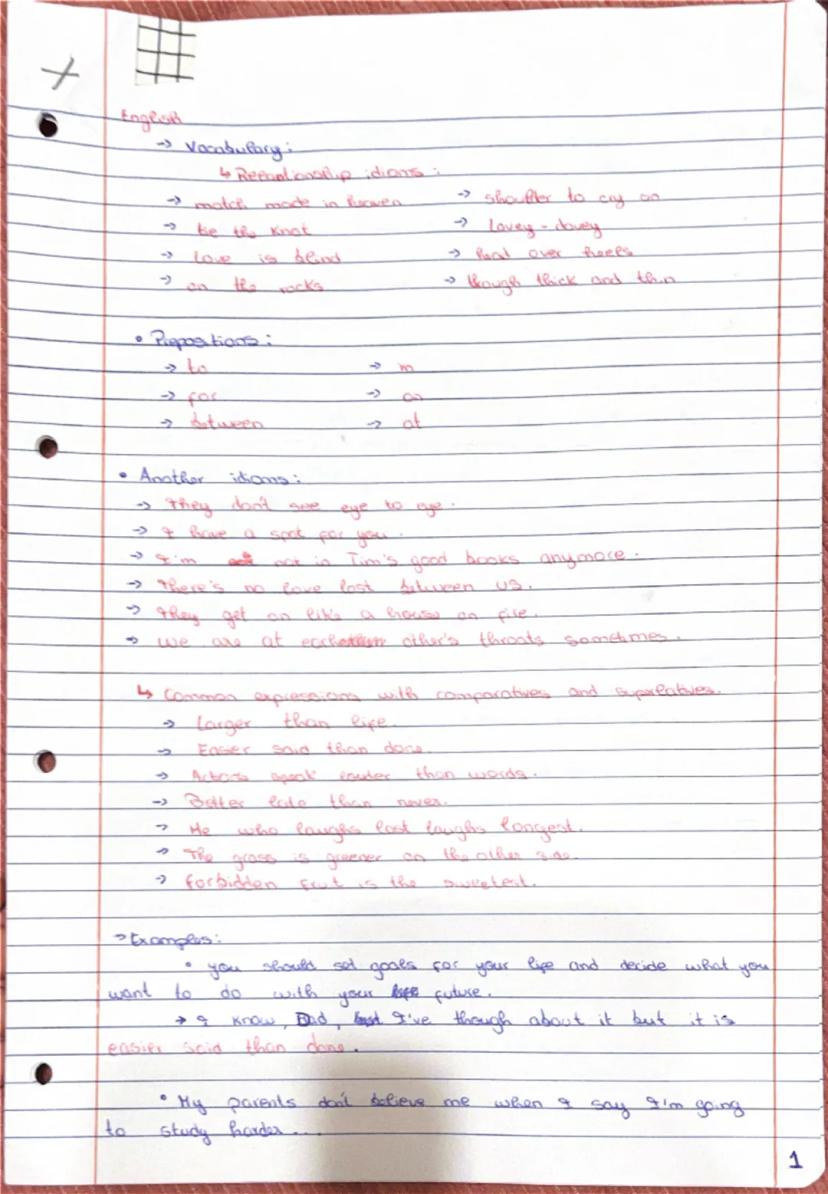 English
→ Vocabulary:
↳ Relationship idioms:
→ match made in heaven → shoulder to cry on
→ tie the knot → Lovey-dovey
→ Love is blind → head over heels
→ on the rocks → though thick and thin
• Prepositions:
→ to → in
→ for → on
→ between → at
• Another idioms:
→ They don't see eye to eye.
→ I have a spot for you.
→ I'm not in Tim's good books anymore.
→ There's no love lost between us.
→ They get on like a house on fire.
→ We are at each other's throats sometimes.
↳ Common expressions with comparatives and superlatives.
→ Larger than life.
→ Easier said than done.
→ Actions speak louder than words.
→ Better late than never.
→ He who laughs last laughs longest.
→ The grass is greener on the other side.
→ Forbidden fruit is the sweetest.
→ Examples:
• you should set goals for your life and decide what you
want to do with your future.
→ I know, Dad, I've though about it but it is
easier said than done.
• My parents don't believe me when I say I'm going
to study harder...
1